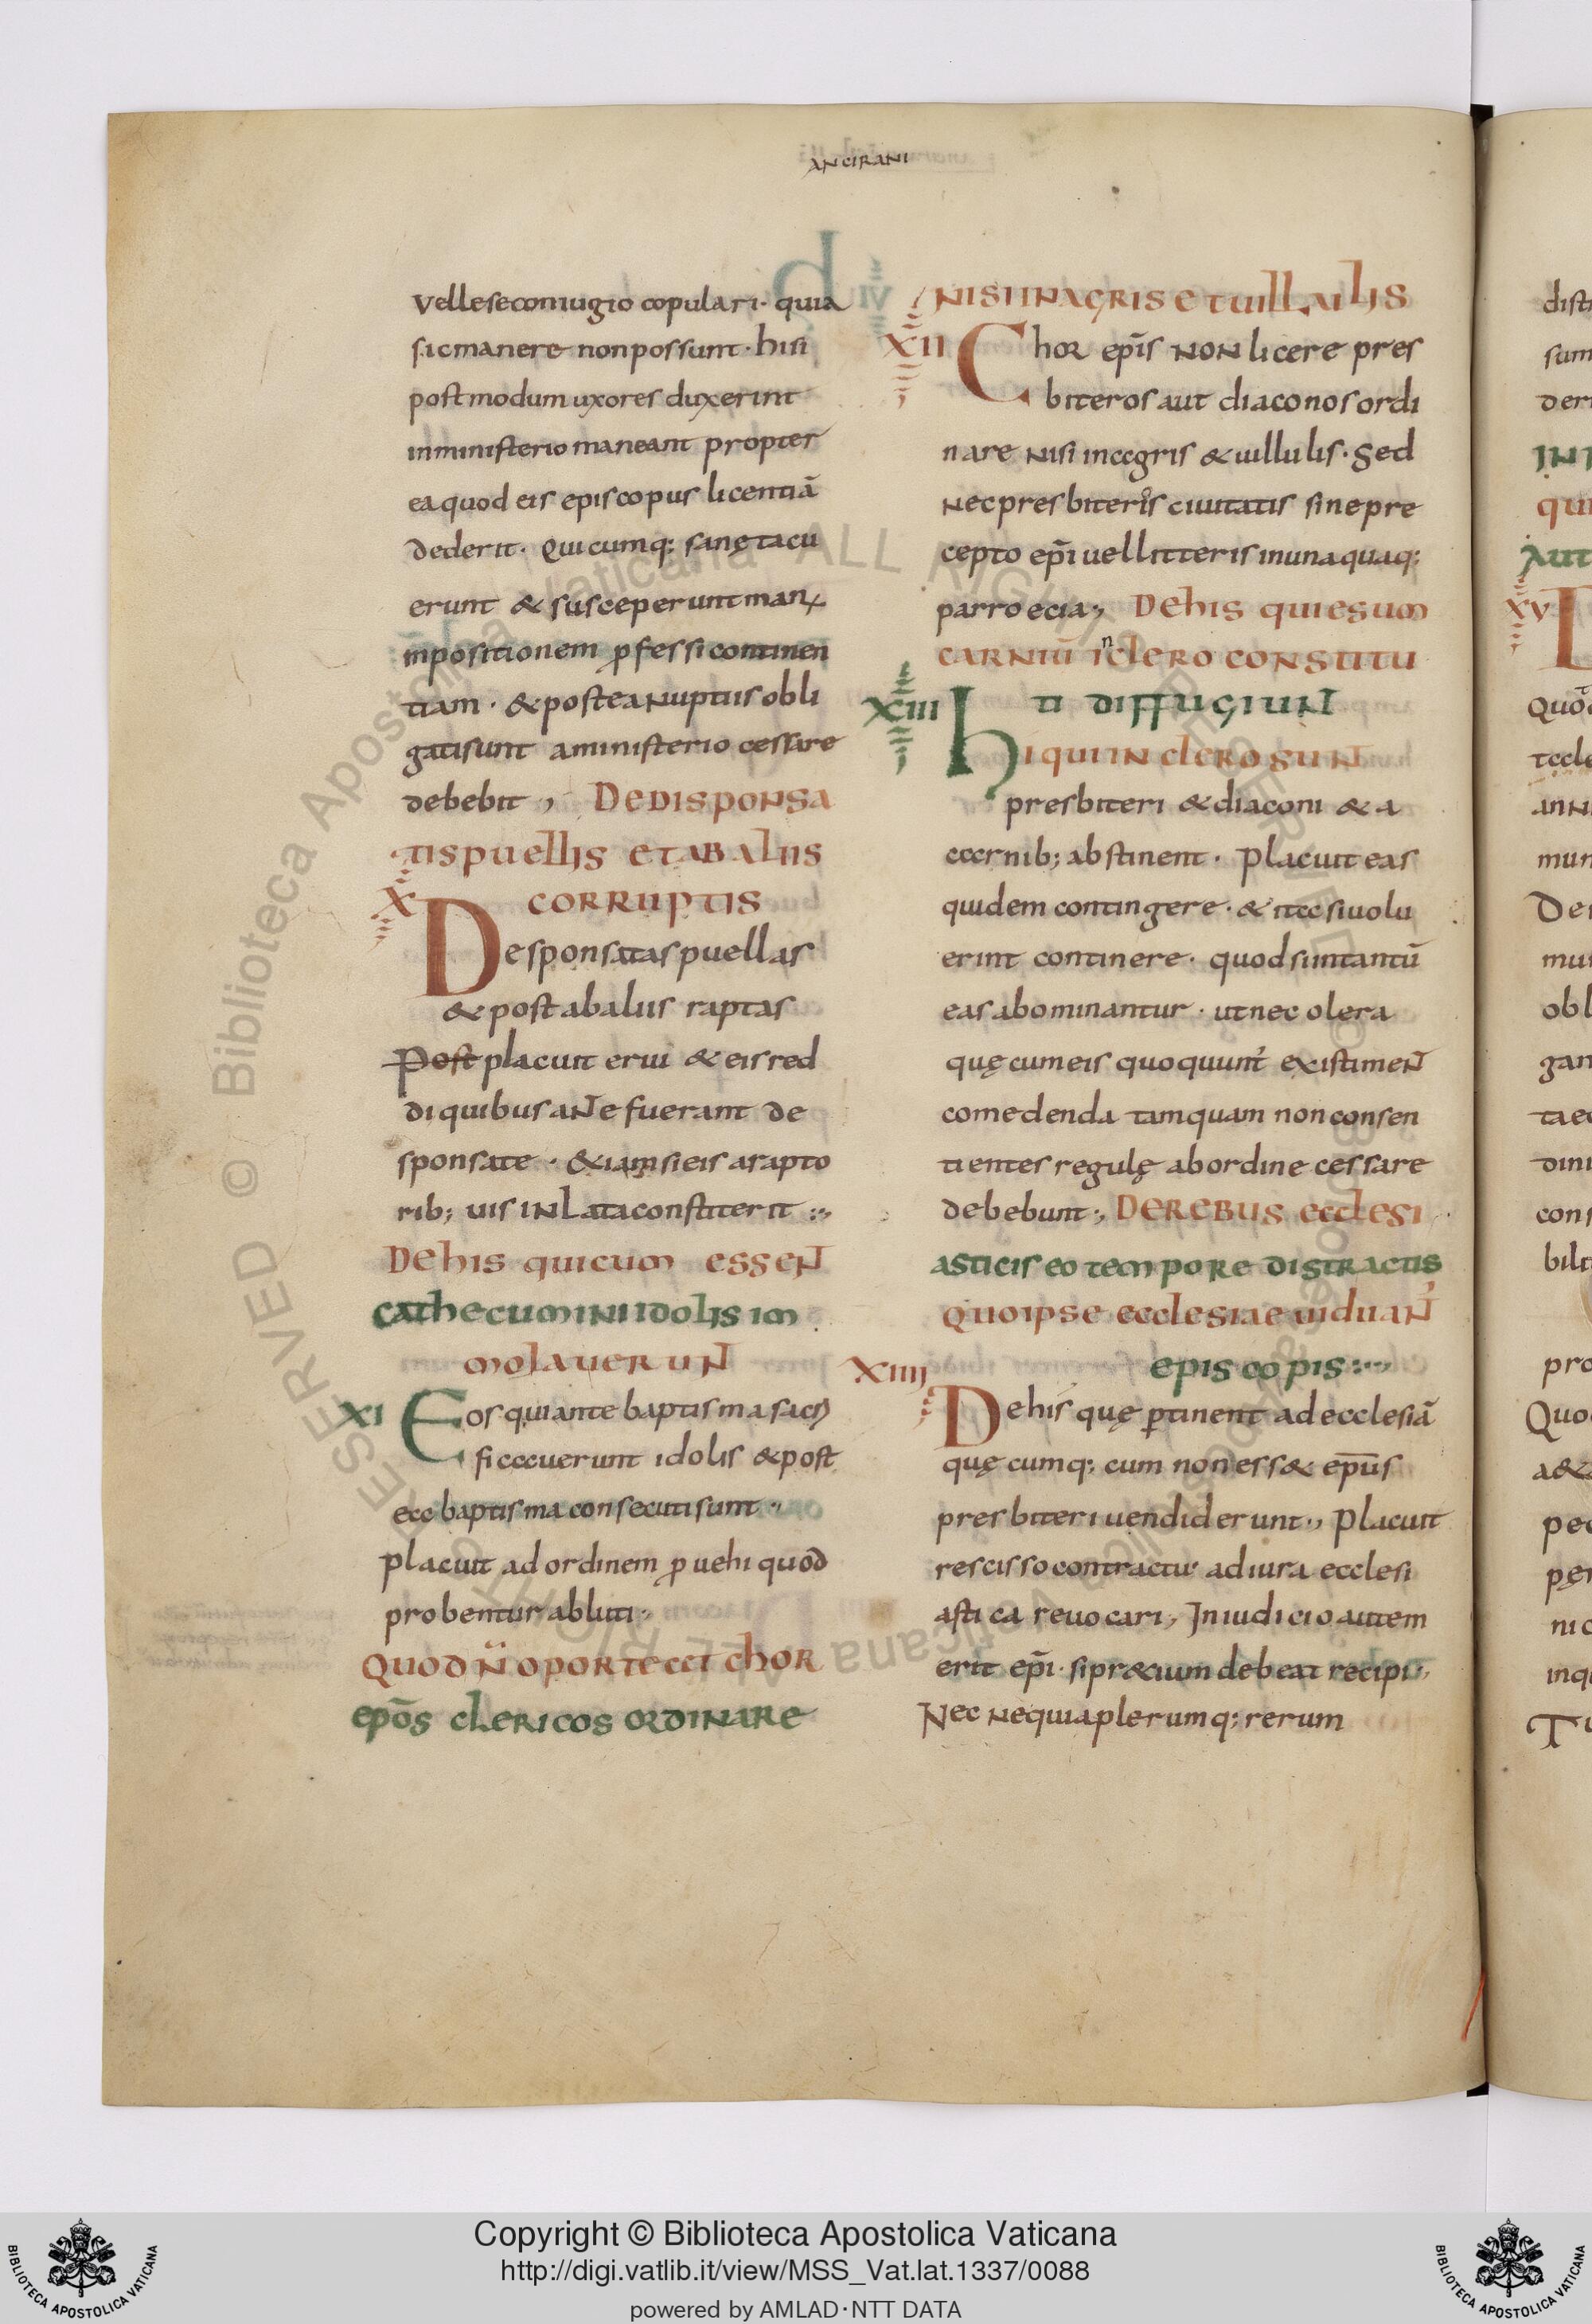 ANCIRANI
velle se coniugio copulari· quia
sic manere non possunt· hi si
postmodum uxores duxerint
in ministerio maneant propter
ea quod eis episcopus licentiā
dederit· Quicumq; sanę tacu
erunt & susceperunt man;
inpositionem ꝓfessi continen
tiam· & postea nuptiis obli
gati sunt a ministerio cessare
debebit, De disponsa
tis puellis et ab aliis
X corruptis
Desponsatas puellas
& post ab aliis raptas
Post placuit erui & eis red
di quibus ante fuerant de
sponsate· &iam si eis a rapto
rib; uis inlata constiterit
De his qui cum essent
cathecumini idolis im
molaverunt
XI Eos qui ante baptisma sacri
ficauerunt idolis & post
ea baptisma consecuti sunt
placuit ad ordinem ꝓuehi quod
probentur abluti
Quod n̄ oporteat chor
ep̄os clericos ordinare
nisi in agris et uillulis
XII Chor ep̄is non licere pres
biteros aut diaconos ordi
nare nisi in agris & uillulis· Sed
nec presbiteris ciuitatis sine pre
cepto ep̄i uel litteris in unaquaq;
parroecia, De his qui esum
carniū in clero constitu
XIII ti diffugiunt
hi qui in clero sunt
presbiteri & diaconi & a
carnib; abstinent· placuit eas
quidem contingere· & ita si uolu
erint continere· quod si in tantū
eas abominantur· ut nec olera
quę cum eis quoquunt existiment
comedenda tamquam non consen
tientes regulę ab ordine cessare
debebunt; De rebus ecclesi
asticis eo tempore distractis
quo ipse ecclesiae uiduant
XIIII episcopis
De his quę ꝑtinent ad ecclesiā
quęcumq; cum non ess& ep̄us
presbiteri uendiderunt, placuit
rescisso contractu ad iura ecclesi
astica reuocari, In iudicio autem
erit ep̄i· si præcium debeat recipi
Nec ne quia plerumq; rerum
Copyright © Biblioteca Apostolica Vaticana
http://digi.vatlib.it/view/MSS_Vat.lat.1337/0088
powered by AMLAD·NTT DATA